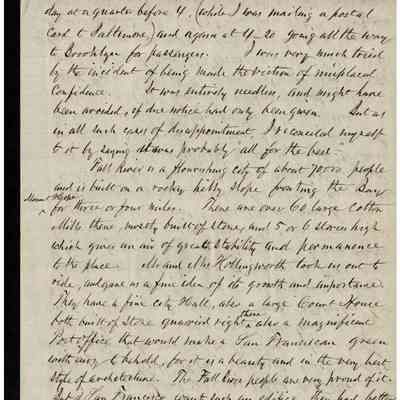 day at a quarter before 4. (while I was mailing a postal
Card to Baltimore) and again at 4-20 going all the way
to Brooklyn for passengers. I was very much tried
by the incident of being made the victim of misplaced
Confidence. It was entirely needless, and might have
been avoided, if due notice had only been given. But as
in all such cases of disappointment, I reconciled myself
to it by saying it was probably "all for the best".
Fall River is a flourishing city of about 70,000 people
and is built on a rocky hilly slope fronting the Bay
for three or four miles. There are over 60 large Cotton
Mills there, mostly built of stone, and 5 or 6 stories high
which gives an air of great stability and permanence
to the place. Mr and Mrs Hollingworth took us out to
ride, and gave us a fine idea of its growth and importance.
They have a fine City Hall, also a large Court House
both built of stone quarried right there, also a magnificent
Post Office that would make a San Franciscan green
with envy to behold, for it is a beauty and in the very best
style of architecture. The Fall River people are very proud of it.
San Francisco want such an edifice they had better